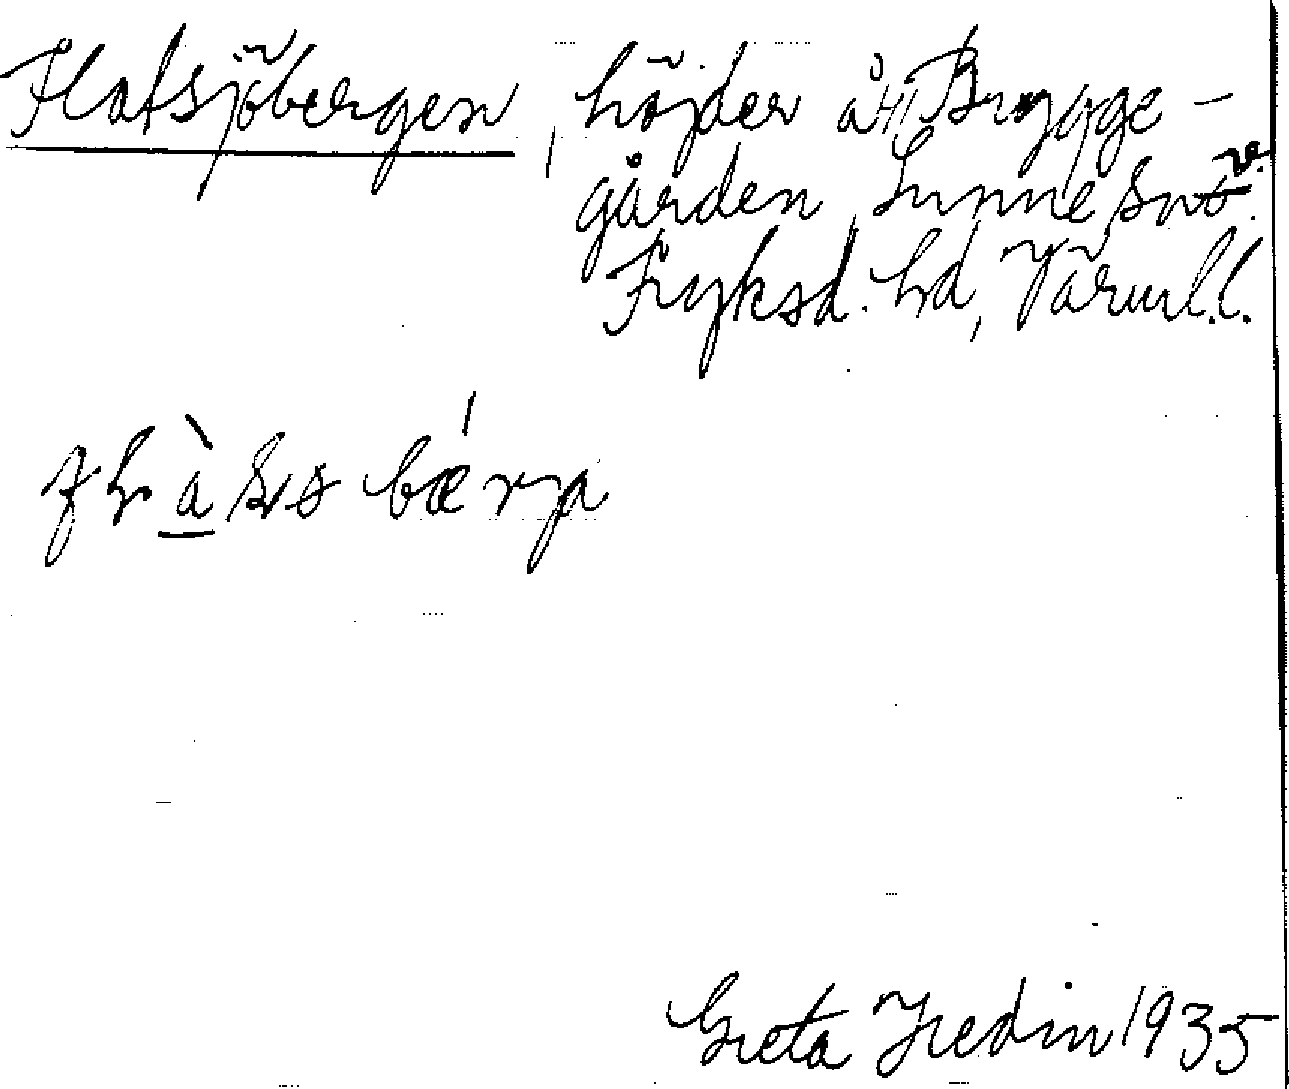 Flatsjöbergen, höjder åt Brygge-
gården, Sunne sn v.
Fryksd. hd, Värml.l.
Greta Hedin 1935